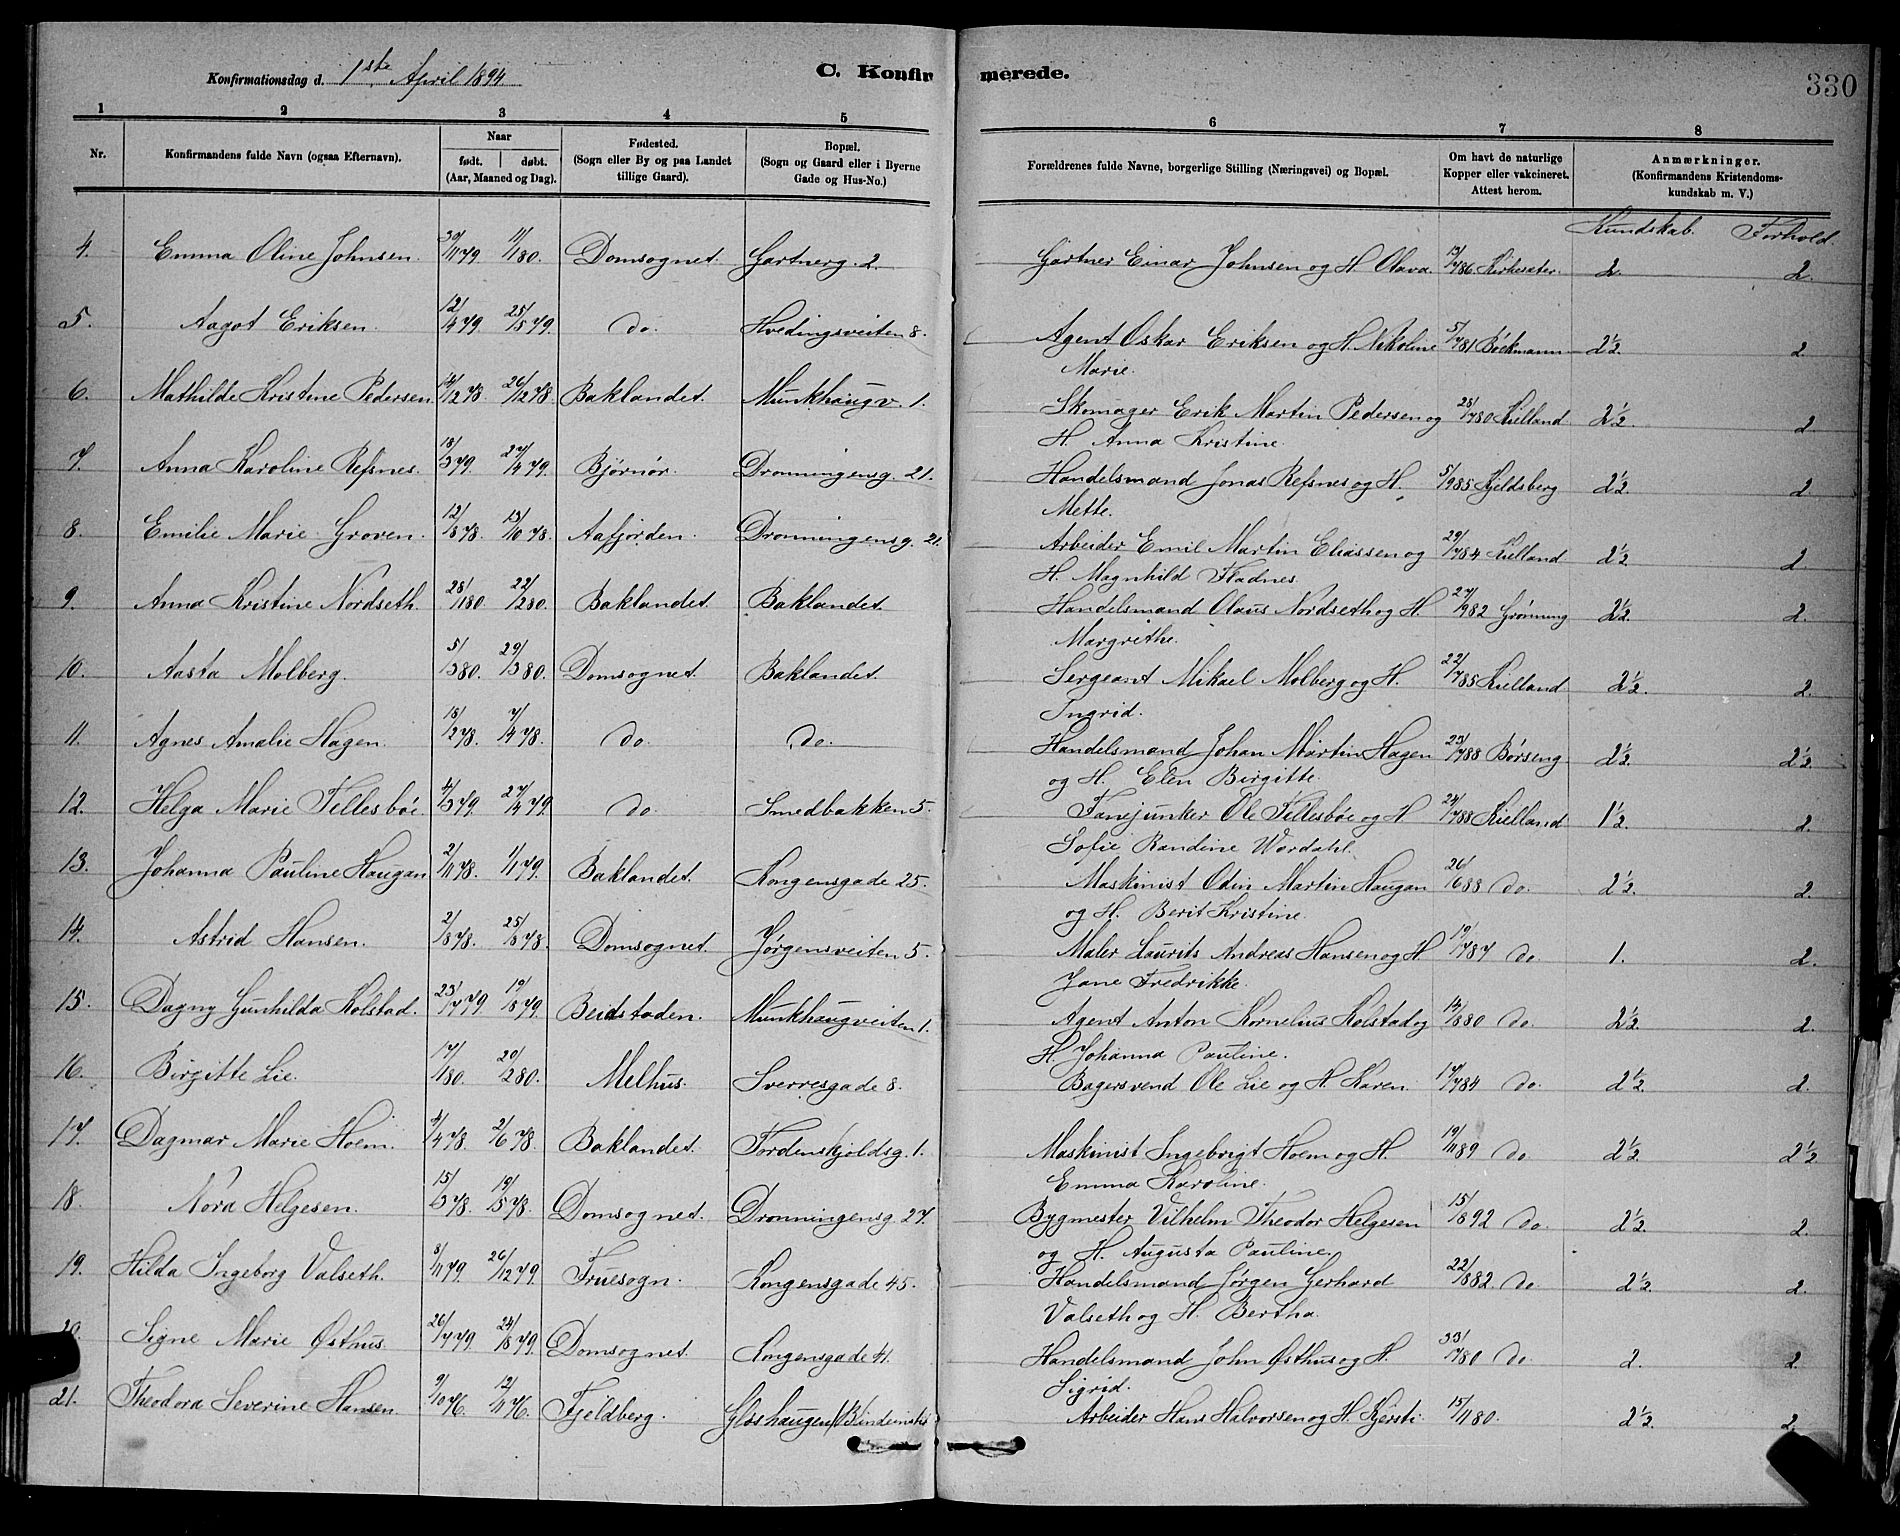 Konfirmationsdag d. 1ste April 1894
C. Konfirmerede.
330
1 2 3 4 5 6 7 8
Nr.
Konfirmandens fulde Navn (ogsaa Efternavn).
Naar
født. døbt.
(Aar, Maaned og Dag).
Fødested.
(Sogn eller By og paa Landet
tillige Gaard).
Bopæl.
(Sogn og Gaard eller i Byerne
Gade og Hus-No.)
Forældrenes fulde Navne, borgerlige Stilling (Næringsvei) og Bopæl.
Om havt de naturlige
Kopper eller vakcineret.
Attest herom.
Anmærkninger.
(Konfirmandens Kristendoms-
kundskab m. V.)
Kundskab. Forhold.
4. Emma Oline Johnsen. 30/11 79. 11/1 80. Domsognet. Gartnerg. 2. Gartner Einar Johnsen og H. Olava. 13/7 86. Kirkesæter. 2. 2.
5. Aagot Eriksen. 12/4 79. 25/5 79. do. Hvedingsveiten 8. Agent Oskar Eriksen og H. Nikoline 5/7 81 Böckmann 2½. 2.
Marie.
6. Mathilde Kristine Pedersen. 14/12 78. 26/12 78. Baklandet. Munkhaugv. 1. Skomager Erik Martin Pedersen og 28/7 80 Kielland 2½. 2.
H. Anna Kristine.
7. Anna Karoline Refsnes. 18/3 79. 27/4 79. Bjørnør. Dronningensg. 21. Handelsmand Jonas Refsnes og H. 5/9 85 Kjeldsberg 2½. 2.
Mette.
8. Emilie Marie Groven. 12/8 78. 13/10 78. Aafjorden. Dronningensg. 21. Arbeider Emil Martin Eliassen og 29/7 84 Kielland 2½. 2.
H. Magnhild Fladnes.
9. Anna Kristine Nordseth. 28/1 80. 22/2 80. Baklandet. Baklandet. Handelsmand Olaus Nordseth og H. 27/9 82 Grønning 2½. 2.
Margrethe.
10. Aasta Molberg. 5/3 80. 29/3 80. Domsognet. Baklandet. Sergeant Mikael Molberg og H. 22/7 85 Kielland 2½. 2.
Ingrid.
11. Agnes Amalie Hagen. 18/2 78. 7/4 78. do. do. Handelsmand Johan Martin Hagen 23/7 88 Børseng 2½. 2½.
og H. Elen Birgitte.
12. Helga Marie Fillesbøe. 4/3 79. 27/4 79. do. Smedbakken 5. Fanejunker Ole Fillesbøe og H 24/7 88 Kielland 1½. 2.
Sofie Randine Wordahl.
13. Johanna Pauline Haugan. 2/11 78. 1/1 79. Baklandet. Kongensgade 25. Maskinist Odin Martin Haugan 26/6 88 do. 2½. 2.
og H. Berit Kristine.
14. Astrid Hansen. 2/8 78. 25/8 78. Domsognet. Jørgensveiten 5. Maler Laurits Andreas Hansen og H 19/7 87 do. 1. 2.
Jane Fredrikke.
15. Dagny Gunhilda Kolstad. 23/7 79. 19/8 79. Beidstaden. Munkhaugveiten 1. Agent Anton Kornelius Kolstad og 14/8 80 do. 2½. 2.
H. Johanna Pauline.
16. Birgitte Lie. 17/1 80. 20/2 80. Melhus. Sverresgade 8. Bagersvend Ole Lie og H. Karen. 17/7 84 do. 2½. 2.
17. Dagmar Marie Hoem. 4/4 78. 2/6 78. Baklandet. Tordenskjoldsg. 1. Maskinist Ingebrigt Hoem og H. 19/11 89 do. 2½. 2½
Emma Karoline.
18. Nora Helgesen. 15/3 78. 19/5 78. Domsognet. Dronningensg. 27. Bygmester Vilhelm Theodor Helgesen 15/8 92 do. 2½. 2.
og H. Augusta Pauline.
19. Hilda Ingeborg Valseth. 8/11 79. 26/12 79. Fruesogn. Kongensgade 45. Handelsmand Jørgen Gerhard 22/8 82 do. 2½. 2.
Valseth og H. Bertha.
20. Signe Marie Østhus. 26/7 79. 24/8 79. Domsognet. Kongensgade 41. Handelsmand John Østhus og H. 7 80 do. 2. 2
Sigrid.
21. Theodora Severine Hansen. 9/10 76. 12/11 76. Fjeldberg. Gløshaugen Arbeider Hans Halvorsen og H. Kjersti. 15/11 80. 2½. 2.